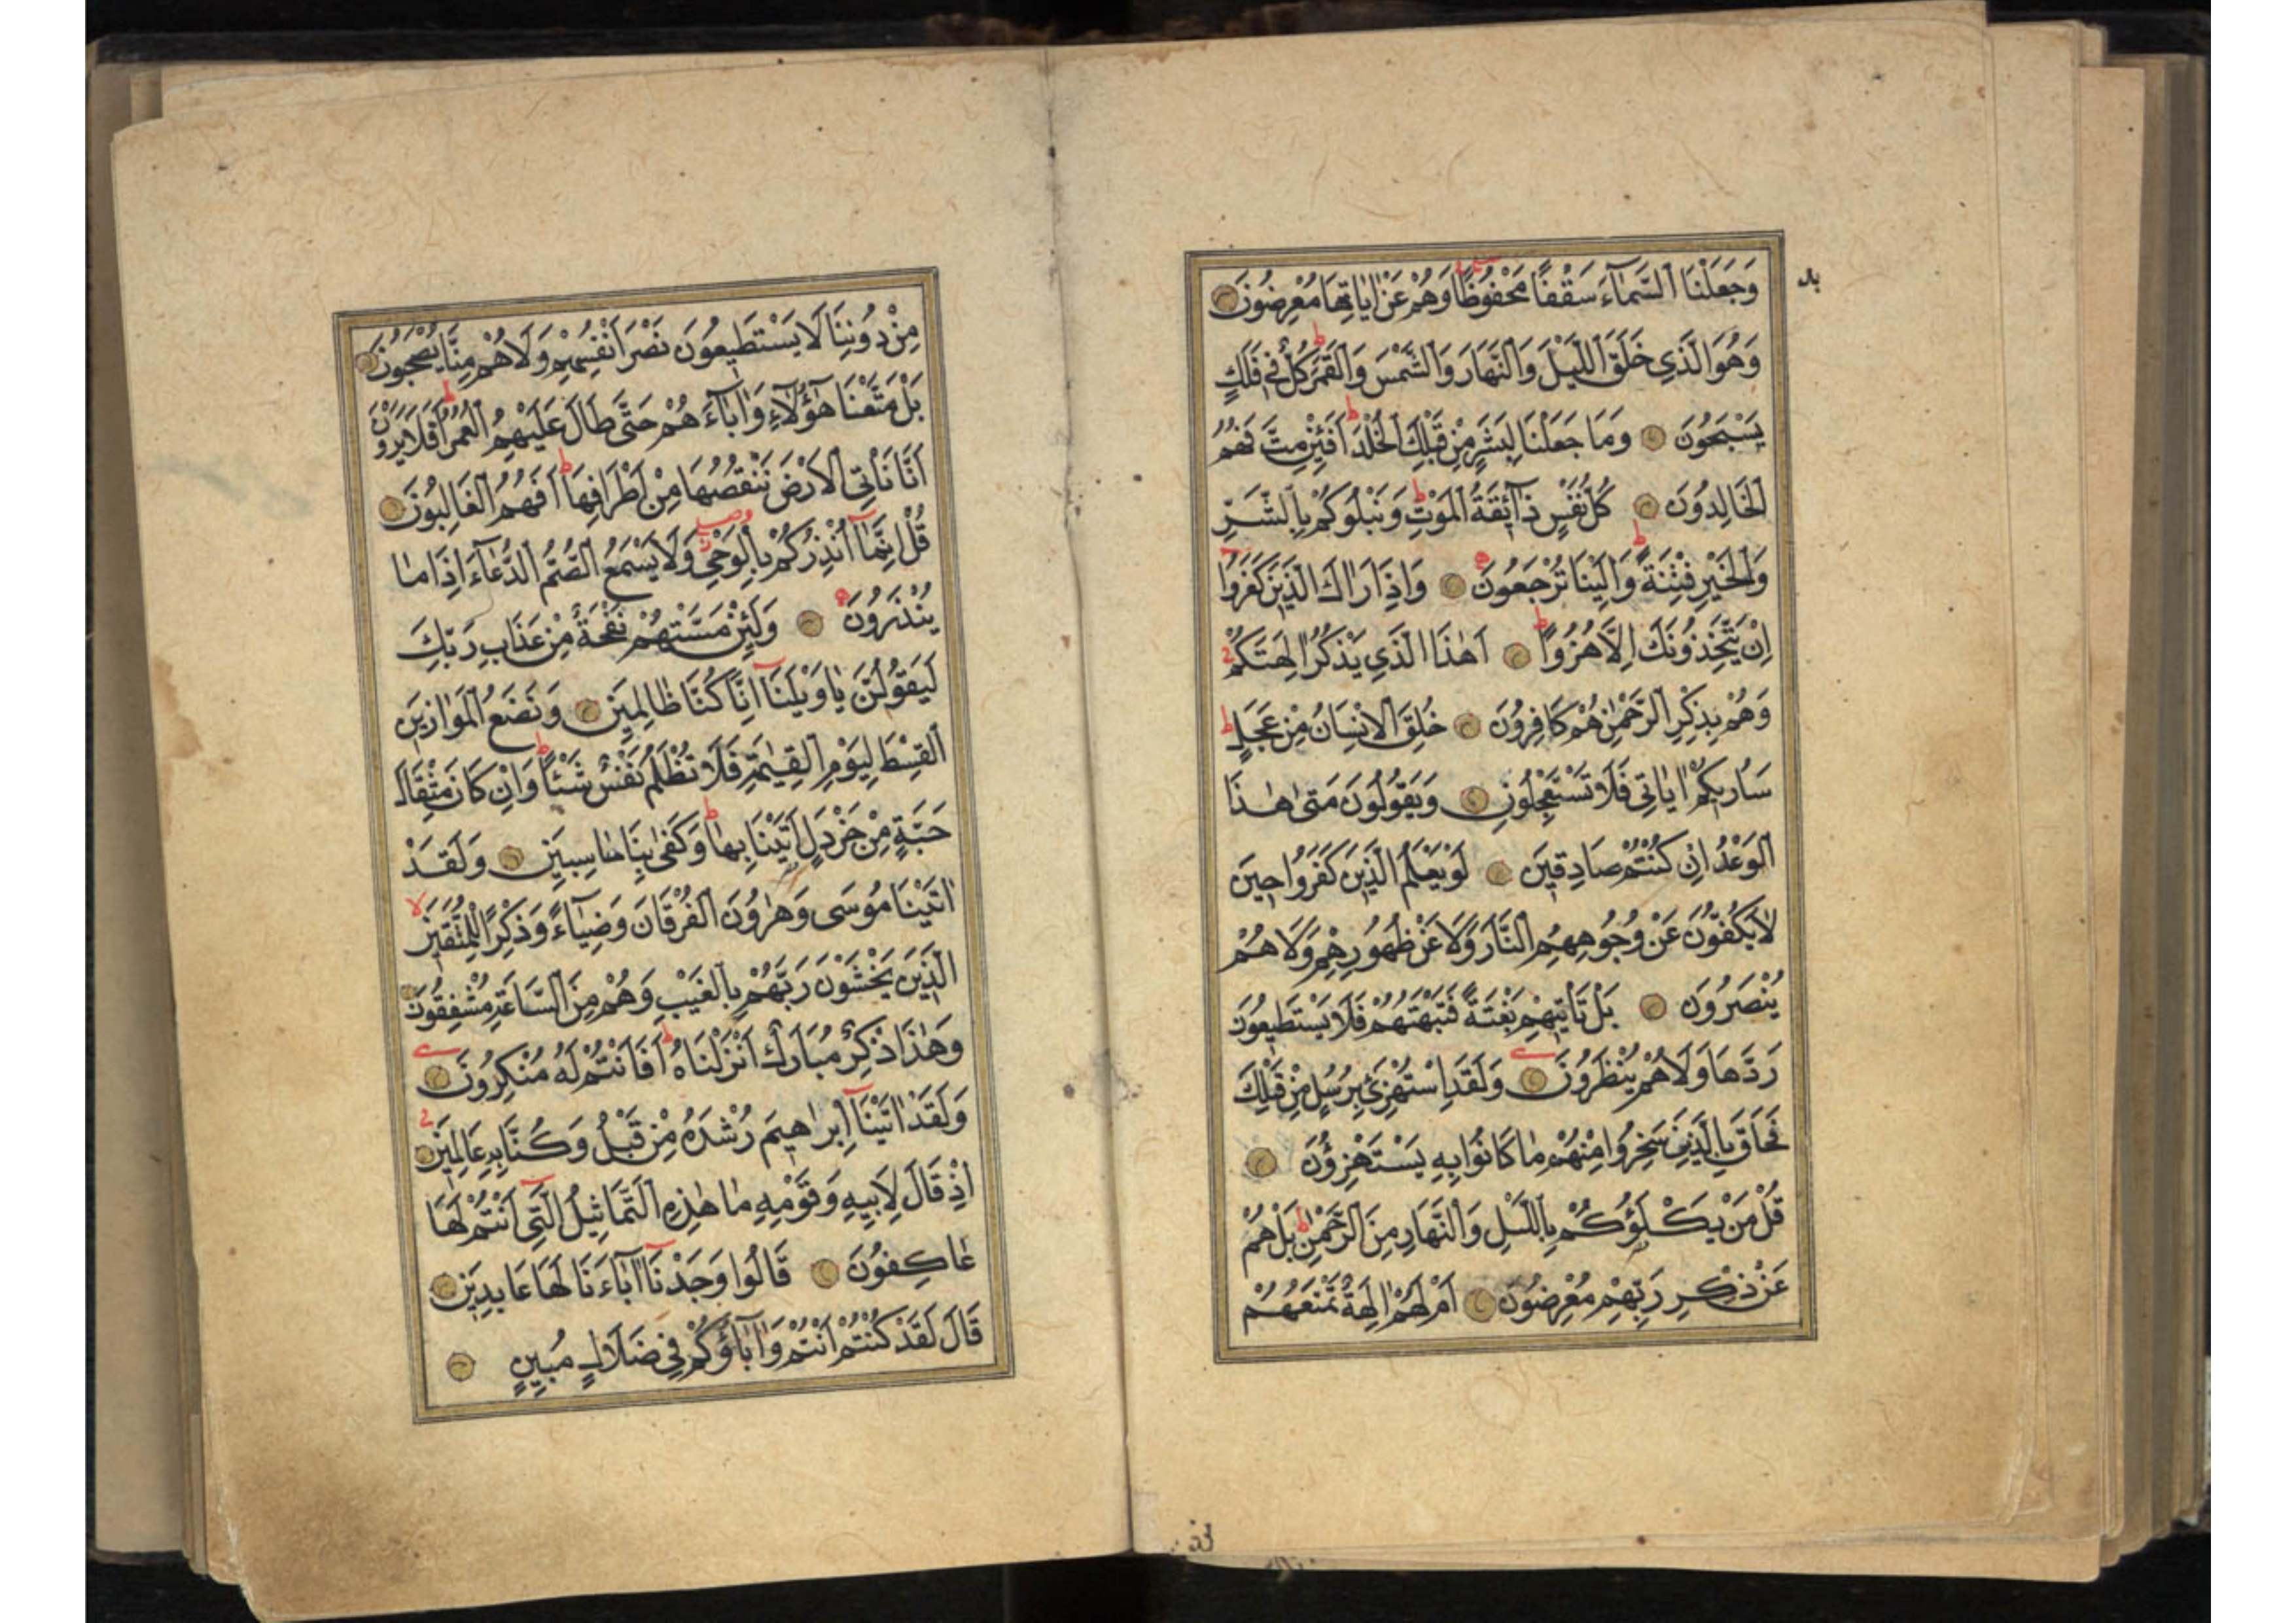 وَجَعَلْنَا السَّمَاءَ سَقْفًا مَحْفُوظًا وَهُمْ عَنْ اٰيَاتِهَا مُعْرِضُونَ
وَهُوَ الَّذِي خَلَقَ اللَّيْلَ وَالنَّهَارَ وَالشَّمْسَ وَالْقَمَرَ كُلٌّ فِي فَلَكٍ
يَسْبَحُونَ وَمَا جَعَلْنَا لِبَشَرٍ مِنْ قَبْلِكَ الْخُلْدَ اَفَئِنْ مِتَّ فَهُمُ
الْخَالِدُونَ كُلُّ نَفْسٍ ذَائِقَةُ الْمَوْتِ وَنَبْلُوكُمْ بِالشَّرِّ
وَالْخَيْرِ فِتْنَةً وَاِلَيْنَا تُرْجَعُونَ وَاِذَا رَاٰكَ الَّذِينَ كَفَرُوا
اِنْ يَتَّخِذُونَكَ اِلَّا هُزُوًا اَهٰذَا الَّذِي يَذْكُرُ اٰلِهَتَكُمْ
وَهُمْ بِذِكْرِ الرَّحْمٰنِ هُمْ كَافِرُونَ خُلِقَ الْاِنْسَانُ مِنْ عَجَلٍ
سَاُرِيكُمْ اٰيَاتِي فَلَا تَسْتَعْجِلُونِ وَيَقُولُونَ مَتٰى هٰذَا
الْوَعْدُ اِنْ كُنْتُمْ صَادِقِينَ لَوْ يَعْلَمُ الَّذِينَ كَفَرُوا حِينَ
لَا يَكُفُّونَ عَنْ وُجُوهِهِمُ النَّارَ وَلَا عَنْ ظُهُورِهِمْ وَلَا هُمْ
يُنْصَرُونَ بَلْ تَاْتِيهِمْ بَغْتَةً فَتَبْهَتُهُمْ فَلَا يَسْتَطِيعُونَ
رَدَّهَا وَلَا هُمْ يُنْظَرُونَ وَلَقَدِ اسْتُهْزِئَ بِرُسُلٍ مِنْ قَبْلِكَ
فَحَاقَ بِالَّذِينَ سَخِرُوا مِنْهُمْ مَا كَانُوا بِهِ يَسْتَهْزِؤُنَ
قُلْ مَنْ يَكْلَؤُكُمْ بِاللَّيْلِ وَالنَّهَارِ مِنَ الرَّحْمٰنِ بَلْ هُمْ
عَنْ ذِكْرِ رَبِّهِمْ مُعْرِضُونَ اَمْ لَهُمْ اٰلِهَةٌ تَمْنَعُهُمْ
مِنْ دُونِنَا لَا يَسْتَطِيعُونَ نَصْرَ اَنْفُسِهِمْ وَلَا هُمْ مِنَّا يُصْحَبُونَ
بَلْ مَتَّعْنَا هٰؤُلَاءِ وَاٰبَاءَهُمْ حَتّٰى طَالَ عَلَيْهِمُ الْعُمُرُ اَفَلَا يَرَوْنَ
اَنَّا نَاْتِي الْاَرْضَ نَنْقُصُهَا مِنْ اَطْرَافِهَا اَفَهُمُ الْغَالِبُونَ
قُلْ اِنَّمَا اُنْذِرُكُمْ بِالْوَحْيِ وَلَا يَسْمَعُ الصُّمُّ الدُّعَاءَ اِذَا مَا
يُنْذَرُونَ وَلَئِنْ مَسَّتْهُمْ نَفْحَةٌ مِنْ عَذَابِ رَبِّكَ
لَيَقُولُنَّ يَا وَيْلَنَا اِنَّا كُنَّا ظَالِمِينَ وَنَضَعُ الْمَوَازِينَ
الْقِسْطَ لِيَوْمِ الْقِيٰمَةِ فَلَا تُظْلَمُ نَفْسٌ شَيْئًا وَاِنْ كَانَ مِثْقَالَ
حَبَّةٍ مِنْ خَرْدَلٍ اَتَيْنَا بِهَا وَكَفٰى بِنَا حَاسِبِينَ وَلَقَدْ
اٰتَيْنَا مُوسَى وَهٰرُونَ الْفُرْقَانَ وَضِيَاءً وَذِكْرًا لِلْمُتَّقِينَ
الَّذِينَ يَخْشَوْنَ رَبَّهُمْ بِالْغَيْبِ وَهُمْ مِنَ السَّاعَةِ مُشْفِقُونَ
وَهٰذَا ذِكْرٌ مُبَارَكٌ اَنْزَلْنَاهُ اَفَاَنْتُمْ لَهُ مُنْكِرُونَ
وَلَقَدْ اٰتَيْنَا اِبْرٰهِيمَ رُشْدَهُ مِنْ قَبْلُ وَكُنَّا بِهِ عَالِمِينَ
اِذْ قَالَ لِاَبِيهِ وَقَوْمِهِ مَا هٰذِهِ التَّمَاثِيلُ الَّتِي اَنْتُمْ لَهَا
عَاكِفُونَ قَالُوا وَجَدْنَا اٰبَاءَنَا لَهَا عَابِدِينَ
قَالَ لَقَدْ كُنْتُمْ اَنْتُمْ وَاٰبَاؤُكُمْ فِي ضَلَالٍ مُبِينٍ